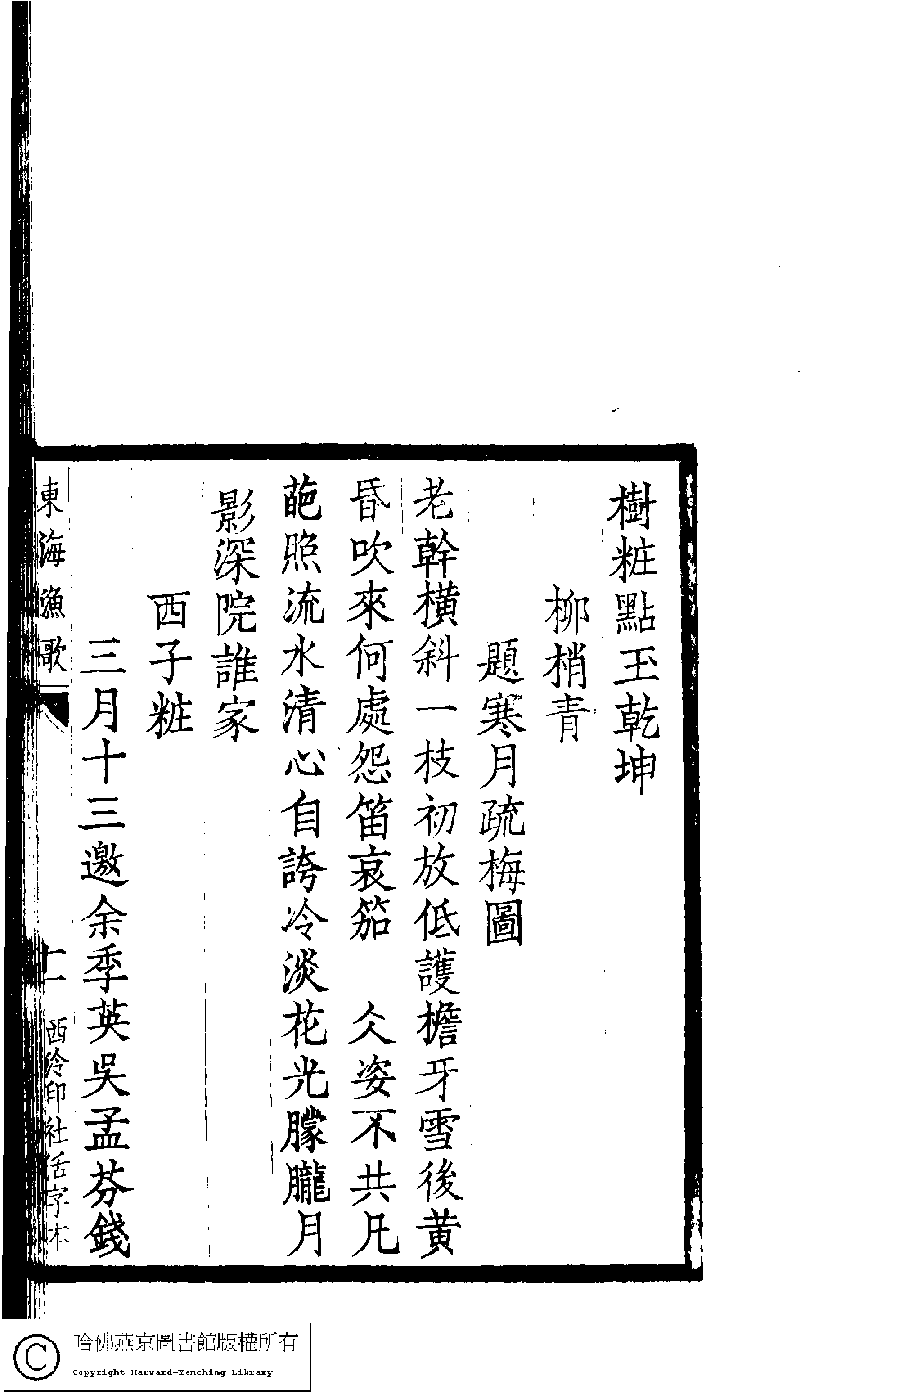 樹粧點玉乾坤
柳梢青
題寒月疏梅圖
老幹橫斜一枝初放低護檐牙雪後黃
昏吹來何處怨笛哀笳　仌姿不共凡
葩照流水清心自誇冷淡花光朦朧月
影深院誰家
西子粧
三月十三邀余季英吳孟芬錢
東海漁歌
西泠印社活字本
哈佛燕京圖書館版權所有
Copyright Harvard-Yenching Library